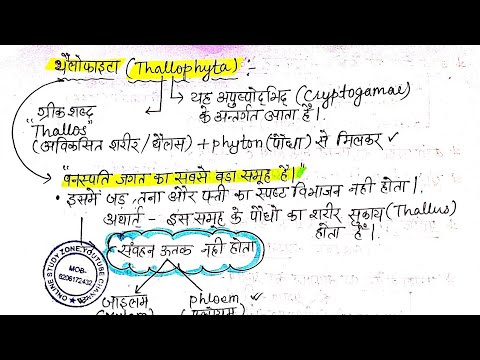 थैलोफाइटा (Thallophyta) :-
→ यह अपुष्पोद्भिद् (Cryptogamae)
के अन्तर्गत आता है।
ग्रीक शब्द
"Thallos"
(अविकसित शरीर/थैलस) + phyton (पौधा) से मिलकर ✓
"वनस्पति जगत का सबसे बड़ा समूह है।"
• इसमें जड़, तना और पत्ती का स्पष्ट विभाजन नही होता।
अर्थात - इस समूह के पौधो का शरीर सुकाय (Thallus)
होता है।
* संवहन ऊतक नही होता
ONLINE STUDY ZONE YOUTUBE CHANNEL
MOB-
6206172432
जाइलम phloem ✓
(xylem)